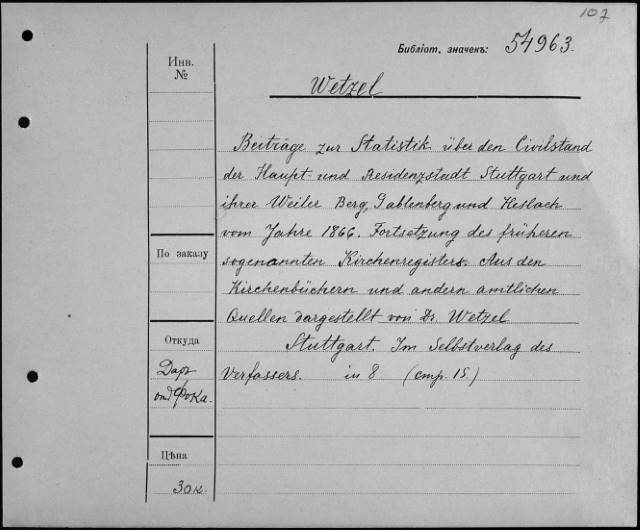 107
Библіот. значекъ: 54963.
Инв.
№
Wetzel
Beiträge zur Statistik über den Civilstand
der Haupt- und Residenzstadt Stuttgart und
ihrer Weiler Berg, Gablenberg und Heslach
vom Jahre 1866. Fortsetzung des früheren
По заказу
sogenannten Kirchenregisters. Aus den
Kirchenbüchern und andern amtlichen
Quellen dargestellt von Dr. Wetzel
Откуда
Stuttgart. Im Selbstverlag des
Даръ
Verfassers. in 8 (стр. 15.)
отд Фока.
Цѣна
30 к.